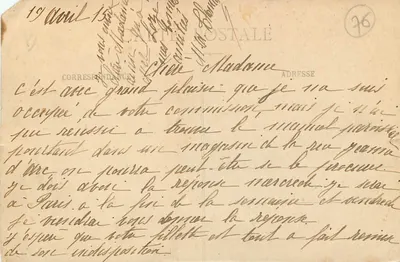 19 avril 15
76
CARTE POSTALE
CORRESPONDANCE ADRESSE
Chère Madame
c'est avec grand plaisir que je me suis
occupé de votre commission, mais je n'ai
pu réussi a trouve le manuel paroissial
pourtant dans un magasin de la rue Jeanne
d'Arc on pourra peut-être se le procurer
je dois avoir la réponse mercredi je serai
à Paris à la fin de la semaine et vendredi
je viendrai vous donner la réponse
j'espère que votre fillette est tout a fait remise
de son indisposition